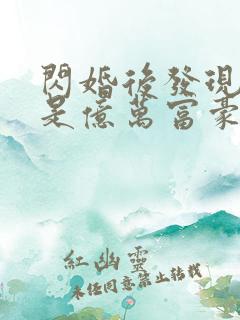 閃婚後發現
是億萬富豪
紅幽靈
未經同意禁止轉載